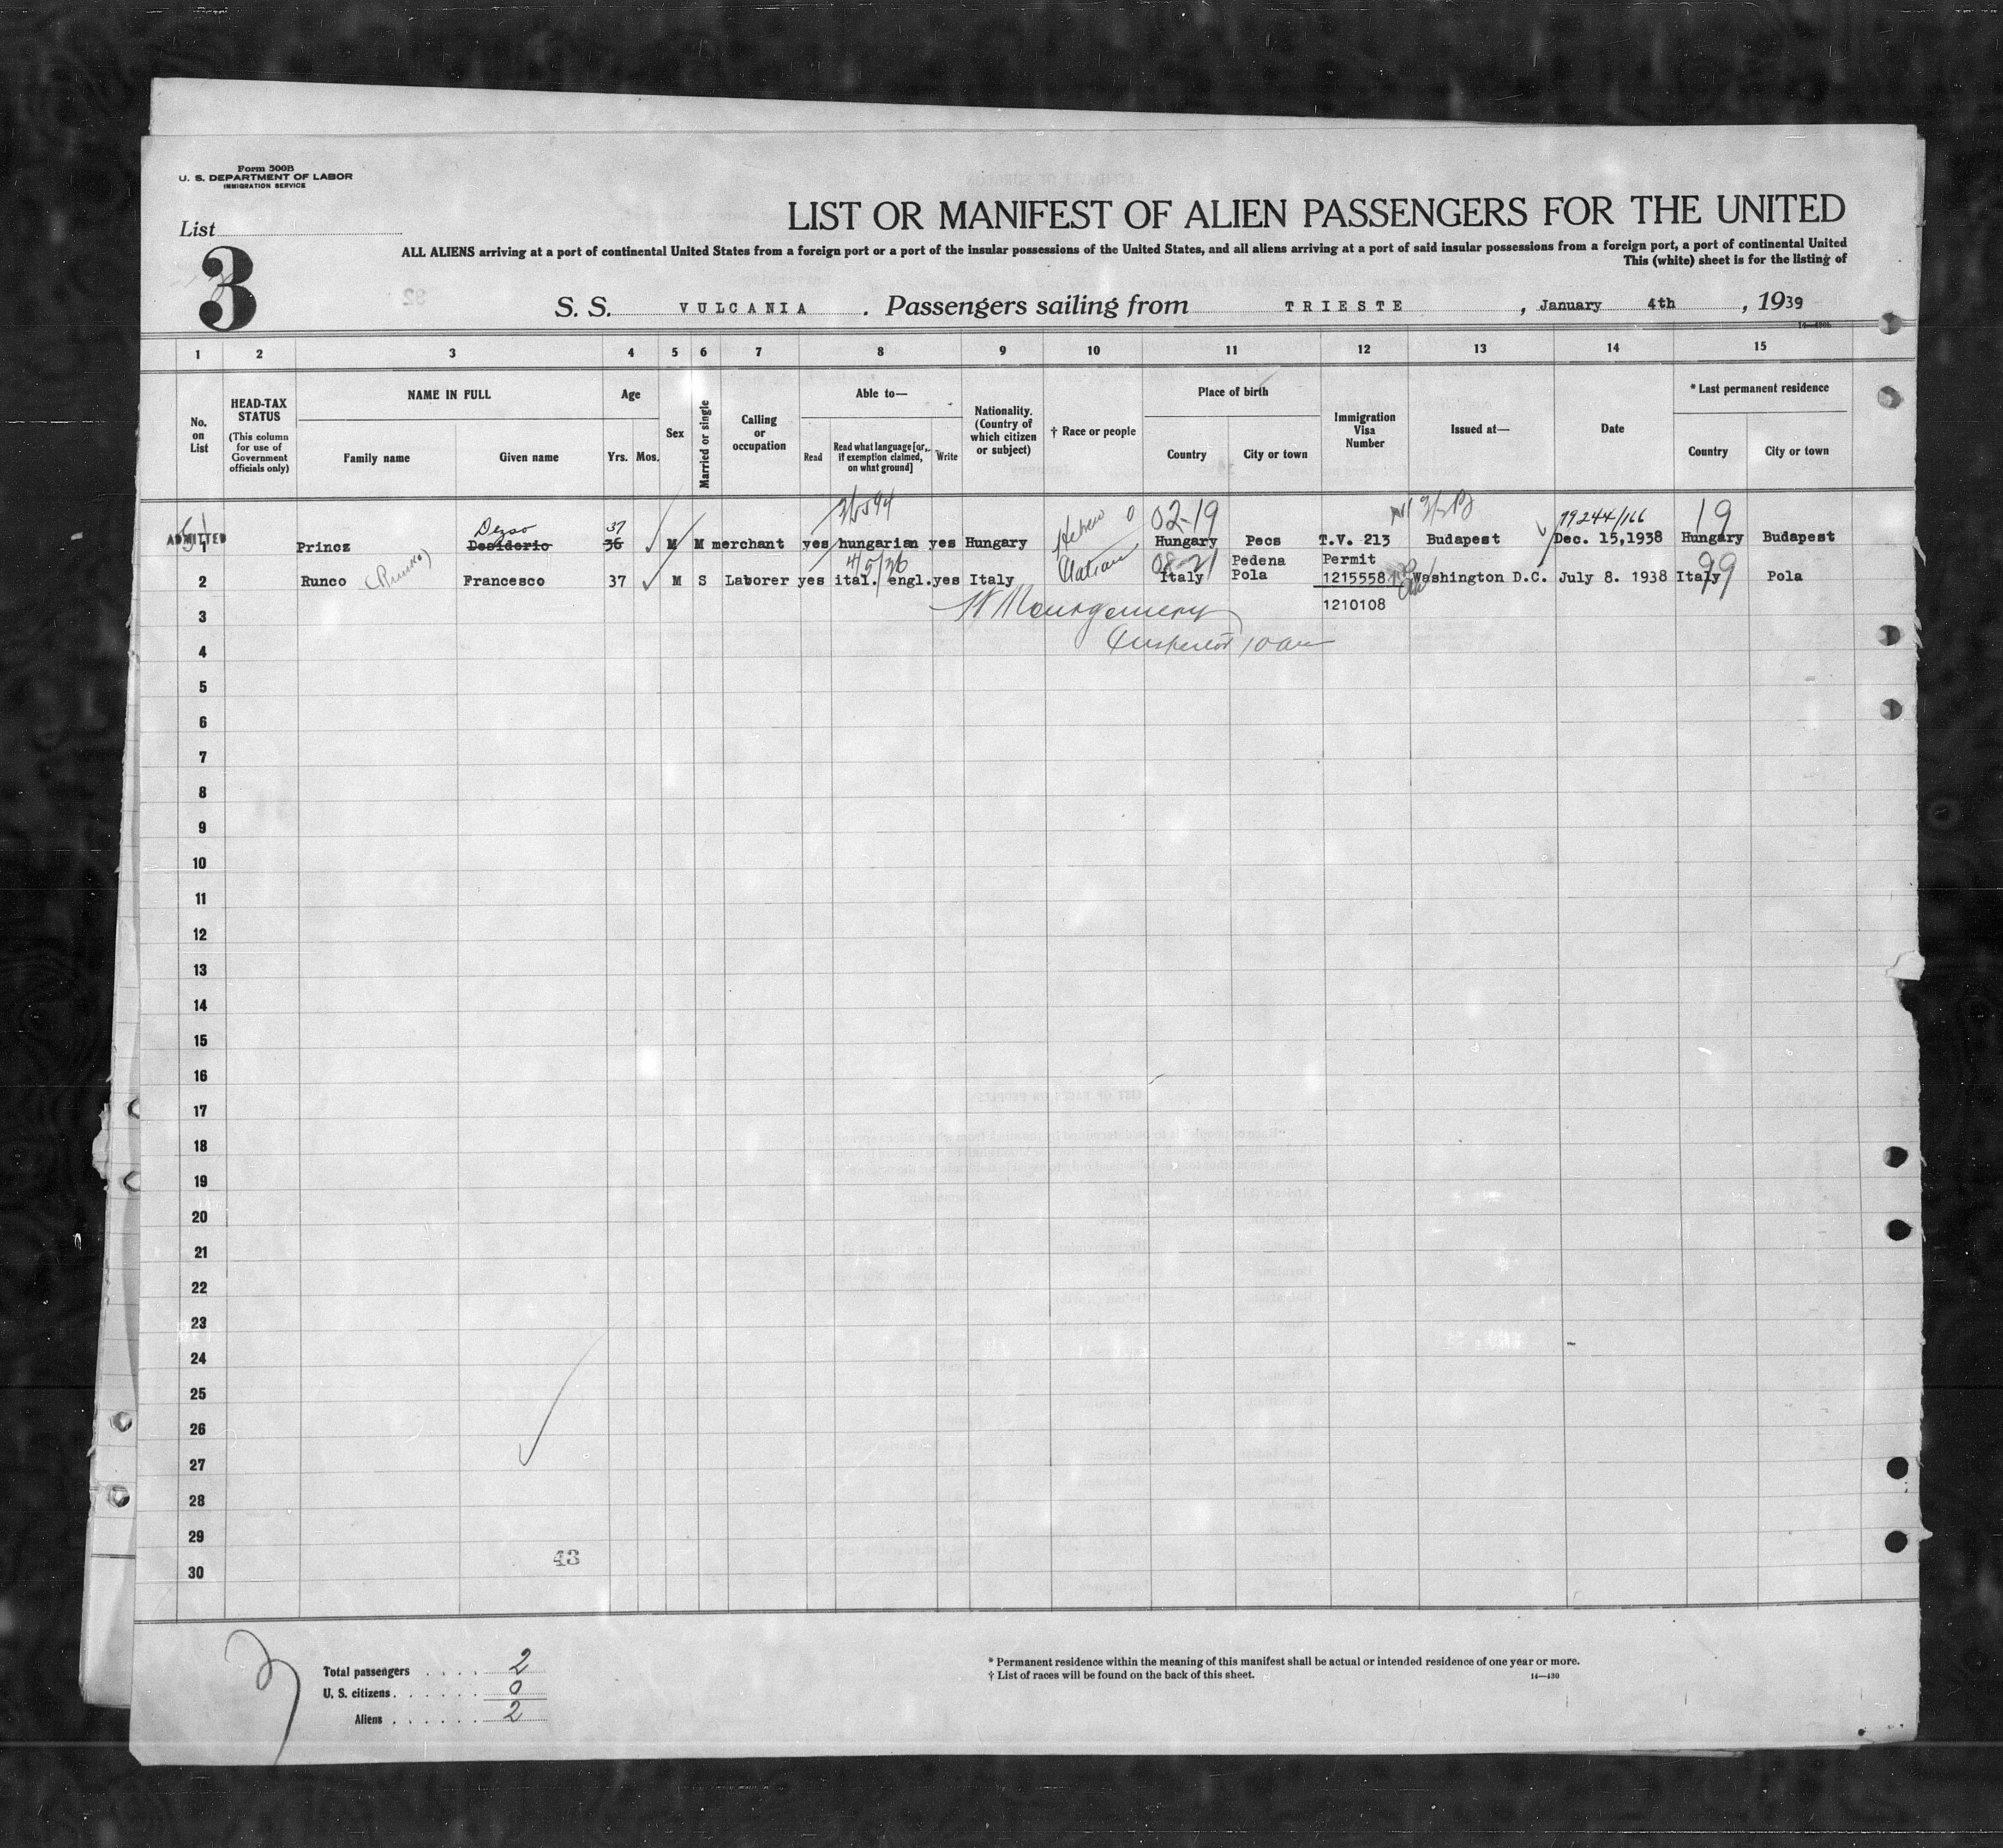 Form 500B
U. S. DEPARTMENT OF LABOR
IMMIGRATION SERVICE
List
3
LIST OR MANIFEST OF ALIEN PASSENGERS FOR THE UNITED
ALL ALIENS arriving at a port of continental United States from a foreign port or a port of the insular possessions of the United States, and all aliens arriving at a port of said insular possessions from a foreign port, a port of continental United
This (white) sheet is for the listing of
S. S. VULCANIA . Passengers sailing from TRIESTE , January 4th , 1939
1 2 3 4 5 6 7 8 9 10 11 12 13 14 15
No. on List
HEAD-TAX STATUS (This column for use of Government officials only)
NAME IN FULL
Family name Given name
Age
Yrs. Mos.
Sex
Married or single
Calling or occupation
Able to—
Read Read what language [or, if exemption claimed, on what ground] Write
Nationality. (Country of which citizen or subject)
† Race or people
Place of birth
Country City or town
Immigration Visa Number
Issued at—
Date
* Last permanent residence
Country City or town
Dezso 37 02-19 79244/166 19
ADMITTED
1 Princz Desiderio 36 M M merchant yes hungarian yes Hungary Hebrew Hungary Pecs T.V. 213 Budapest Dec. 15,1938 Hungary Budapest
Pedena Permit
2 Runco Francesco 37 M S Laborer yes ital. engl. yes Italy Italy Pola 1215558 Washington D.C. July 8. 1938 Italy 99 Pola
1210108
3 Montgomery
4 Inspector
5
6
7
8
9
10
11
12
13
14
15
16
17
18
19
20
21
22
23
24
25
26
27
28
29
43
30
Total passengers . . . . 2
U. S. citizens . . . . . . 0
Aliens . . . . . . 2
* Permanent residence within the meaning of this manifest shall be actual or intended residence of one year or more.
† List of races will be found on the back of this sheet.
14—430